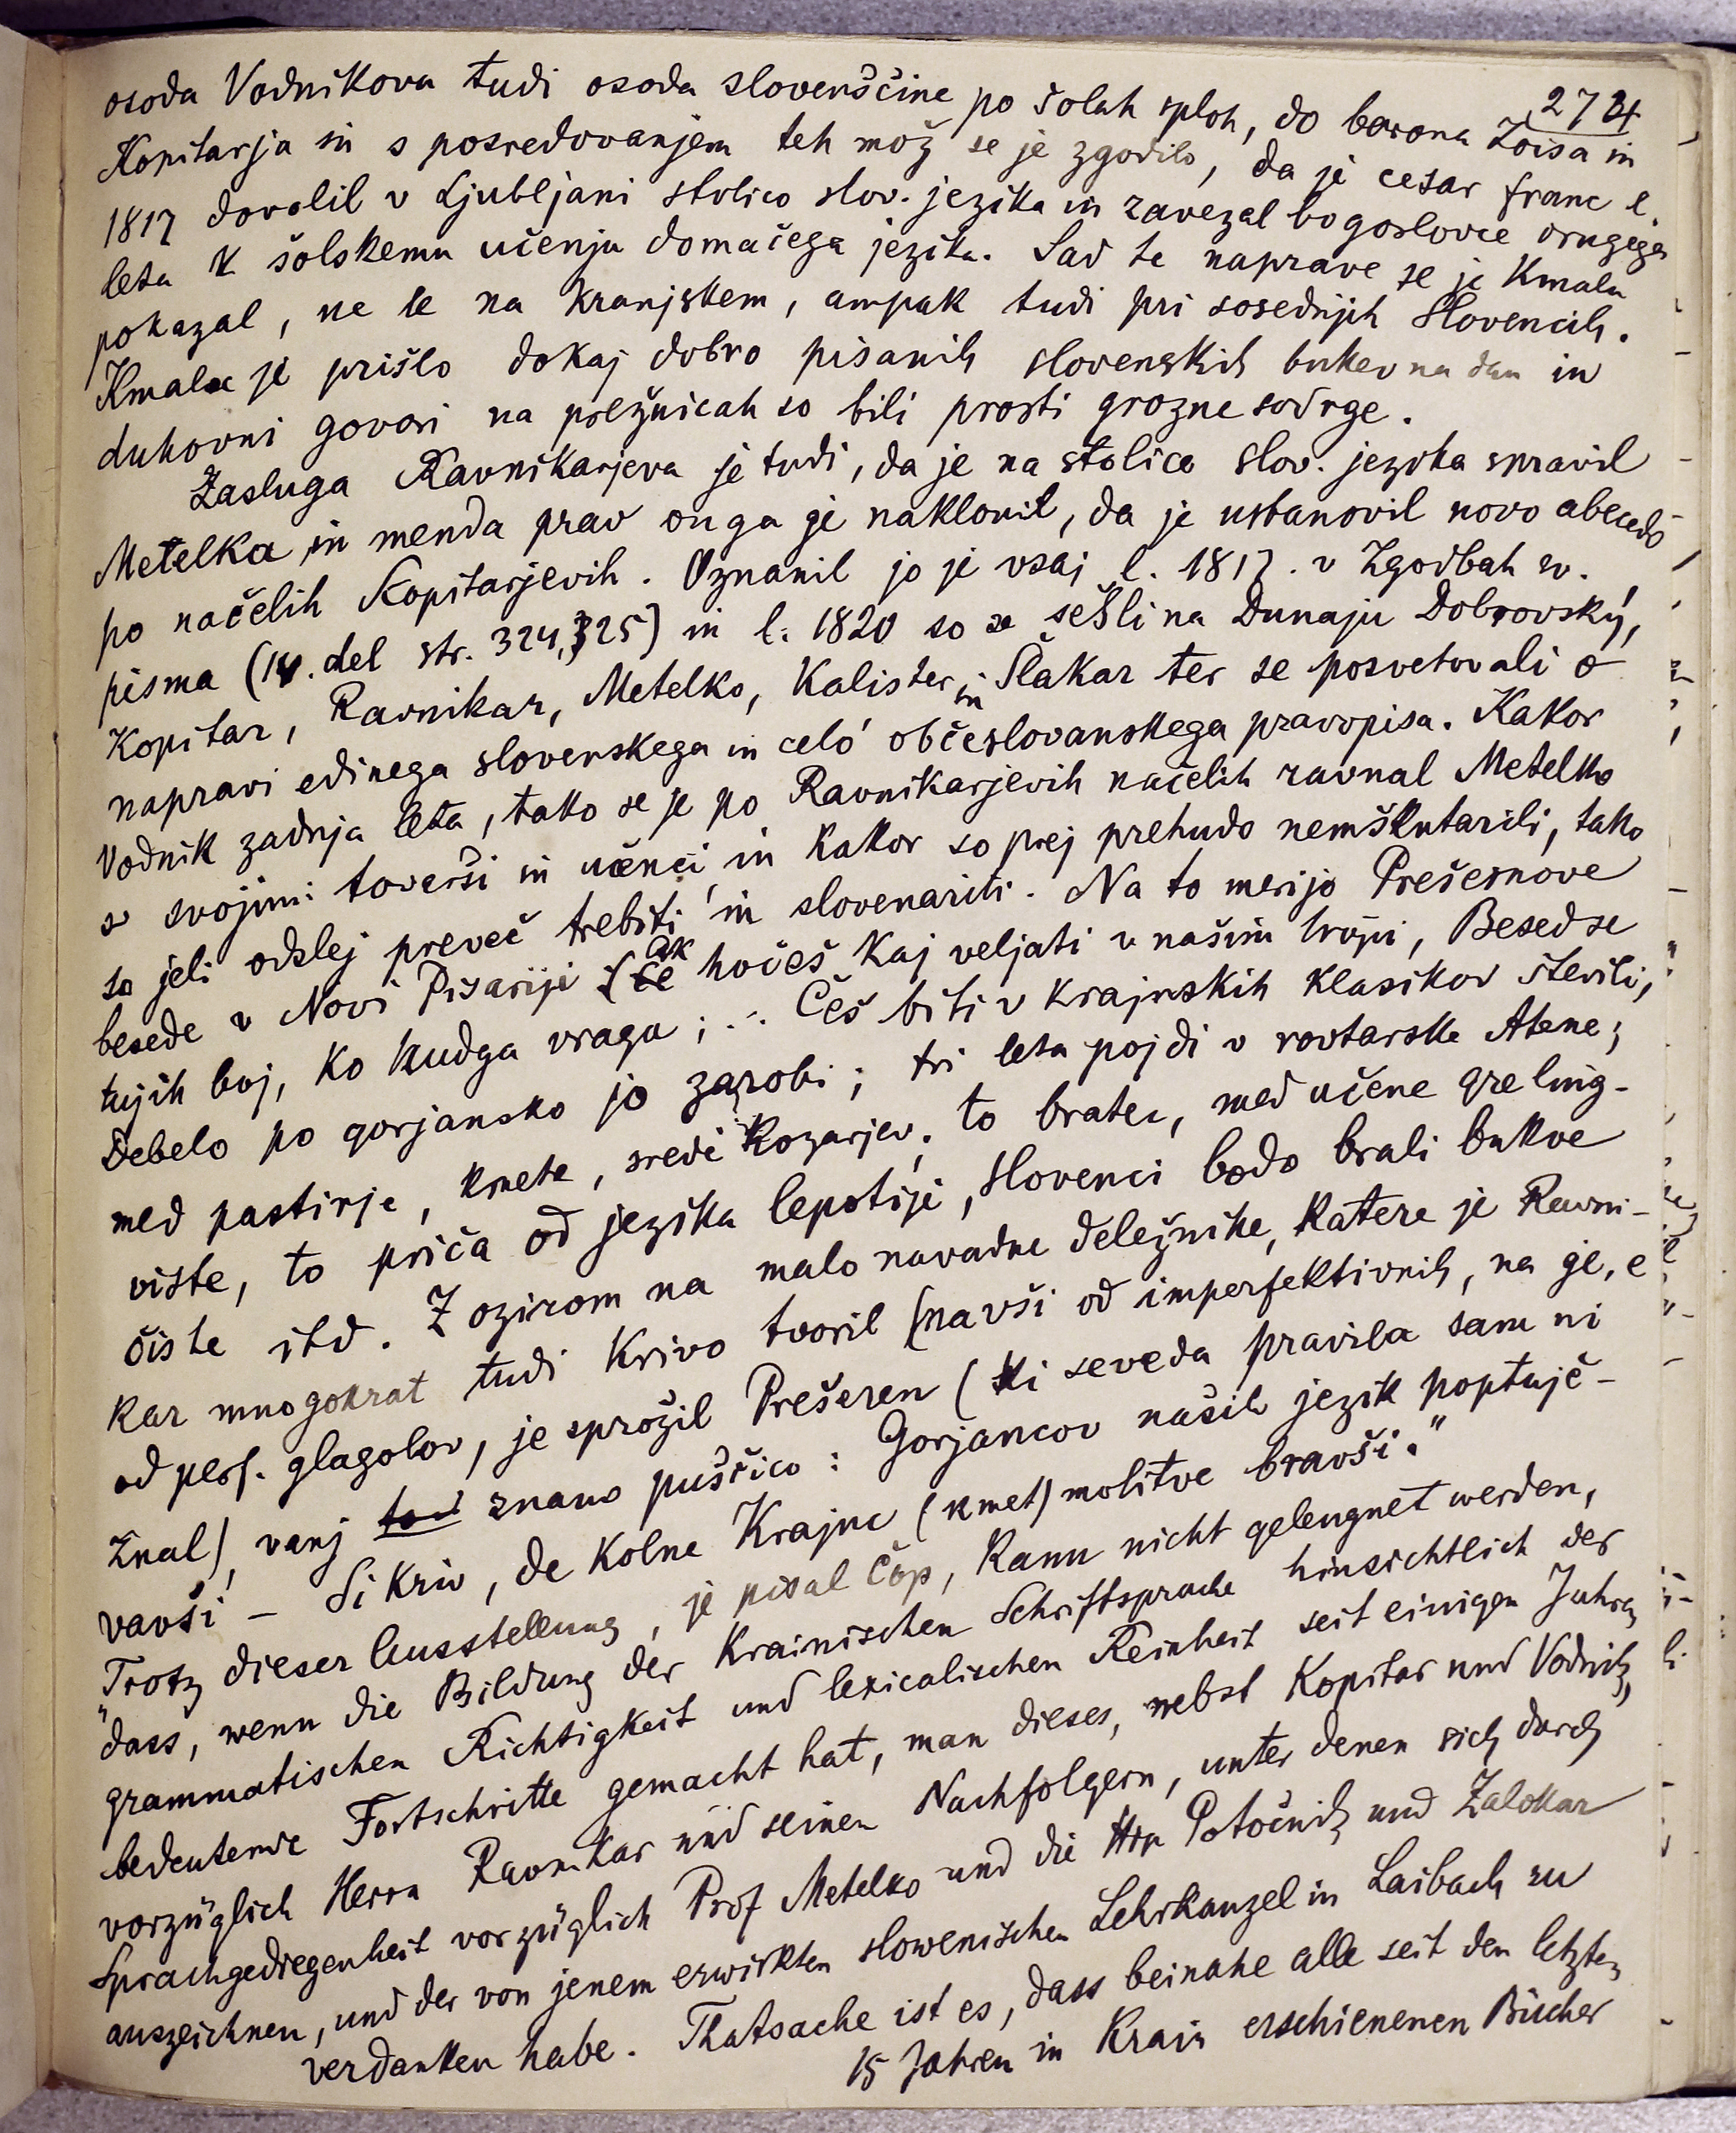 274
osoda Vodnikova tudi osoda slovenščine po šolah sploh, do barona Zoisa in
Kopitarja in s posredovanjem teh mož se je zgodilo, da je cesar franc l.
1817 dovolil v Ljubljani stolico slov. jezika in zavezal bogoslovce drugega
leta k šolskemu učenju domačega jezika. Sad te naprave se je kmalu
pokazal, ne le na kranjskem, ampak tudi pri sosednjih Slovencih.
Kmalu je prišlo dokaj dobro pisanih slovenskih bukev na dan in
duhovni govori na prežnicah so bili prosti grozne sodrge.
Zasluga Ravnikarjeva je tudi, da je na stolico slov. jezika spravil
Metelka in menda prav on ga je naklonil, da je ustanovil novo abecedo
po načelih Kopitarjevih. Oznanil jo je vsaj l. 1817. v Zgodbah sv.
pisma (IV. del str. 324, 325) in l. 1820 so se sešli na Dunaju Dobrovský,
Kopitar, Ravnikar, Metelko, Kalister in Šlakar ter se posvetovali o
napravi edinega slovenskega in celó občeslovanskega pravopisa. Kakor
Vodnik zadnja leta, tako se je po Ravnikarjevih načelih ravnal Metelko
s svojimi toverši in učenci, in kakor so prej prehudo nemškutarili, tako
so jeli odslej preveč trebiti in slovenariti. Na to merijo Prešernove
besede v Novi Pisariji (če ak hočeš kaj veljati v našim tropi, Besed se
tujih boj, ko hudga vraga; ... Češ biti v krajnskih klasikov števili,
Debelo po gorjansko jo zarobi; tri leta pojdi v rovtarske Atene;
med pastirje, kmete, sredi kozarjev; to bratec, med učene gre ling-
viste, to priča od jezika lepotije, Slovenci bodo brali bukve
čiste itd. Z ozirom na malo navadne deležnike, katere je Ravni-
kar mnogokrat tudi krivo tvoril (na vši od imperfektivnih, na ge, e
od perf. glagolov, je sprožil Prešeren (ki seveda pravila sam ni
znal), vanj tod znano puščico: Gorjancov naših jezik poptujč-
vavši – Si kriv, de kolne Krajnc (kmet) molitve bravši."
"Trotz dieser Ausstellung, je pisal Čop, kann nicht geleugnet werden,
dass, wenn die Bildung der Krainischen Schriftsprache hinsichtlich der
grammatischen Richtigkeit und lexicalischen Reinheit seit einigen Jahren
bedeutende Fortschritte gemacht hat, man dieses, nebst Kopitar und Vodnik,
vorzüglich Herrn Ravnikar und seinen Nachfolgern, unter denen sich durch
Sprachgediegenheit vorzüglich Prof Metelko und die Hrn Potočnik und Zalokar
auszeichnen, und der von jenem erwirkten slowenischen Lehrkanzel in Laibach zu
verdanken habe. Thatsache ist es, dass beinahe alle seit den letzten
15 Jahren in Krain erschienenen Bücher